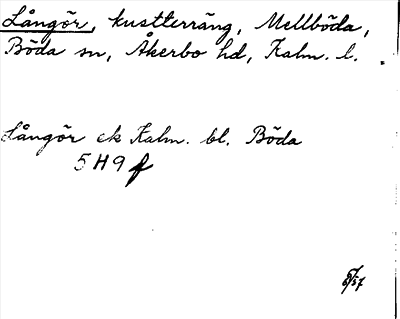 Långör, kustterräng, Mellböda,
Böda sn, Åkerbo hd, Kalm. l.
Långör ek Kalm. bl. Böda
5H9f